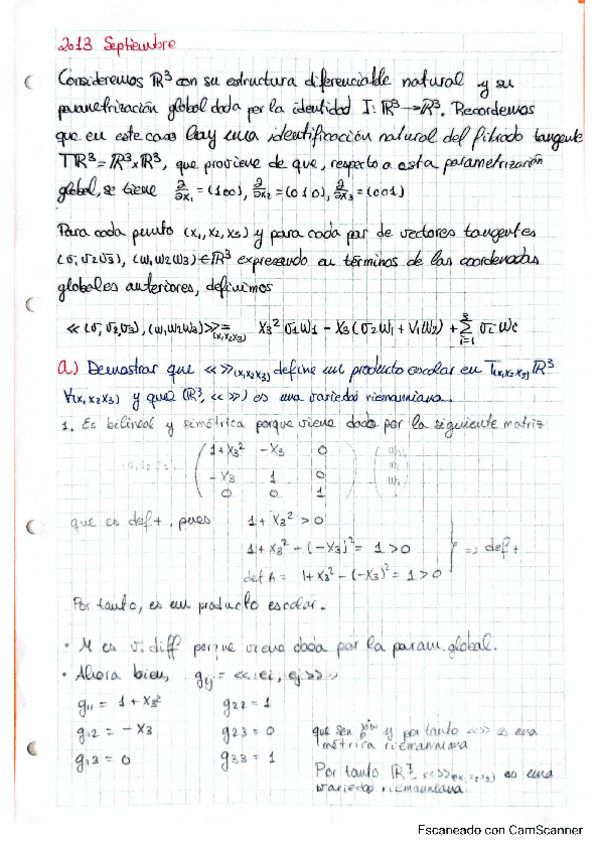 2013 Septiembre
Consideremos ℝ³ con su estructura diferenciable natural y su
parametrización global dada por la identidad I: ℝ³→ℝ³. Recordemos
que en este caso hay una identificación natural del fibrado tangente
Tℝ³=ℝ³xℝ³, que proviene de que, respecto a esta parametrización
global, se tiene ∂/∂x₁ = (100), ∂/∂x₂ = (010), ∂/∂x₃ = (001)
Para cada punto (x₁,x₂,x₃) y para cada par de vectores tangentes
(v₁v₂v₃), (w₁w₂w₃)∈ℝ³ expresando en términos de las coordenadas
globales anteriores, definimos
≪(v₁v₂v₃),(w₁w₂w₃)≫(x₁x₂x₃) = x₃²v₁w₁ - x₃(v₂w₁+v₁w₂) + Σ³ᵢ₌₁ vᵢwᵢ
a) Demostrar que ≪≫(x₁x₂x₃) define un producto escalar en T(x₁x₂x₃)ℝ³
∀(x₁x₂x₃) y que (ℝ³,≪≫) es una variedad riemanniana.
1. Es bilineal y simétrica porque viene dada por la siguiente matriz
(v₁ v₂ v₃) ( 1+x₃² -x₃ 0 ) ( w₁ )
( -x₃ 1 0 ) ( w₂ )
( 0 0 1 ) ( w₃ )
que es def+, pues 1+x₃² > 0
1+x₃² - (-x₃)² = 1 > 0 => def+
det A = 1+x₃² - (-x₃)² = 1 > 0
Por tanto, es un producto escalar.
· M es v. diff porque viene dada por la param. global.
· Ahora bien, gᵢⱼ = ≪eᵢ, eⱼ≫
g₁₁ = 1+x₃² g₂₂ = 1
g₁₂ = -x₃ g₂₃ = 0 que son C^∞ y por tanto ≪≫ es una
métrica riemanniana
g₁₃ = 0 g₃₃ = 1 Por tanto ℝ³, ≪≫(x₁x₂x₃) es una
variedad riemanniana.
Escaneado con CamScanner